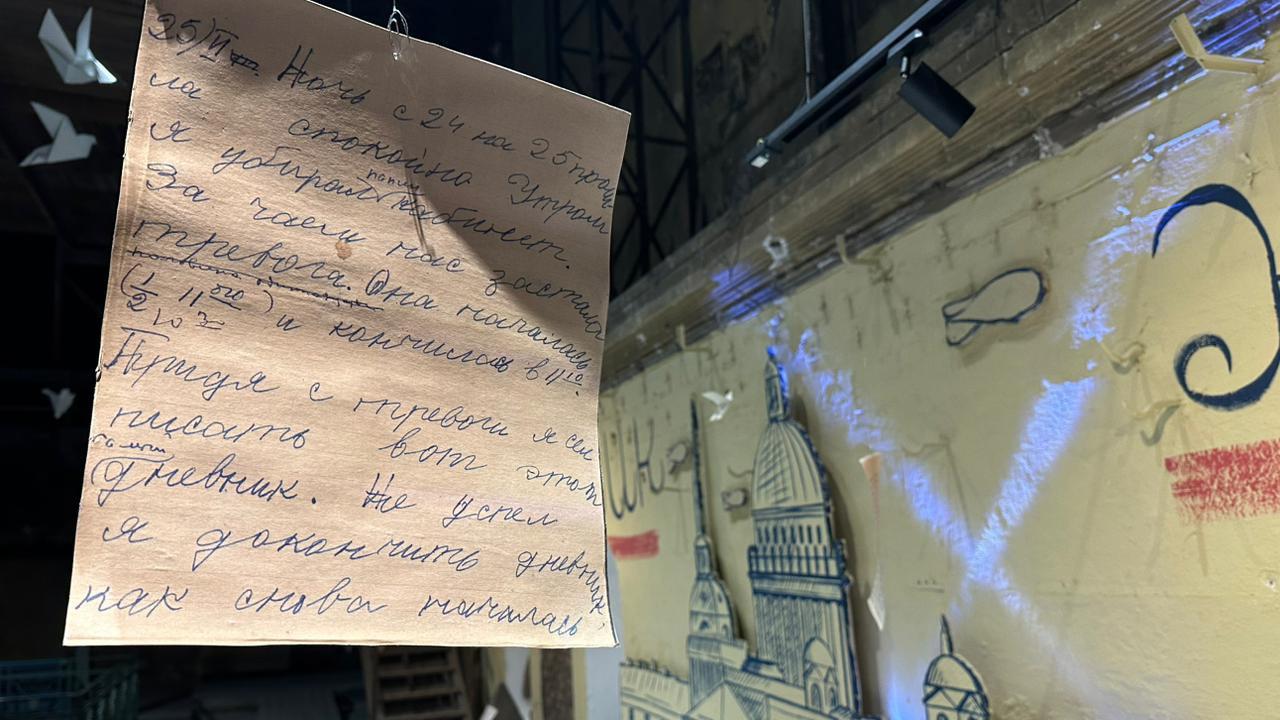 Ночь с 24 на 25 прош
ла спокойно Утром
я убирал папин кабинет.
За чаем нас застала
тревога. Она началась
(1/2 11ого) и кончилась в 11 10.
Придя с тревоги я сел
писать вот этот
дневник. Не успел
я докончить дневник
как снова началась